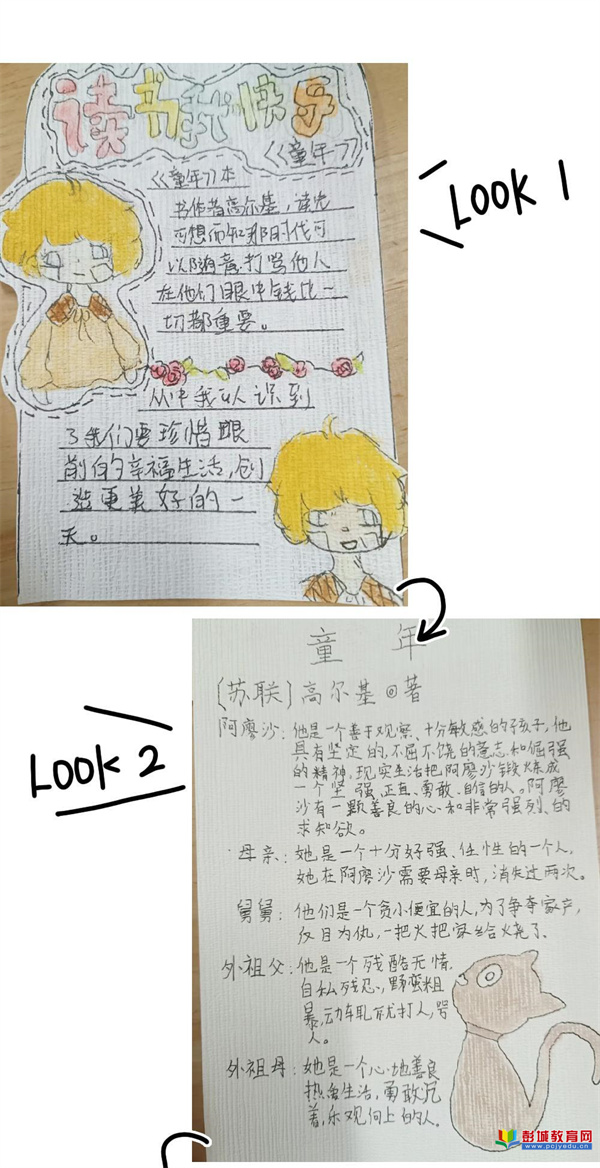 读书我快乐
《童年》
LOOK 1
《童年》本
书作者高尔基，读完
可想而知那时代可
以随意打骂他人
在他们眼中钱比一
切都重要。
从中我认识到
了我们要珍惜眼
前的幸福生活，创
造更美好的一
天。
童年
[苏联]高尔基◎著
LOOK 2
阿廖沙：他是一个善于观察、十分敏感的孩子，他
具有坚定的，不屈不饶的意志和倔强
的精神，现实生活把阿廖沙锻炼成
一个坚强、正直、勇敢、自信的人。阿廖
沙有一颗善良的心和非常强烈的
求知欲。
母亲：她是一个十分好强、任性的一个人，
她在阿廖沙需要母亲时，消失过两次。
舅舅：他们是一个贪小便宜的人，为了争夺家产，
反目为仇，一把火把家给烧了。
外祖父：他是一个残酷无情，
自私残忍、野蛮粗
暴，动车轧就打人，骂
人。
外祖母：她是一个心地善良
热爱生活，勇敢沉
着，乐观向上的人。
彭城教育网
www.pcjyedu.cn